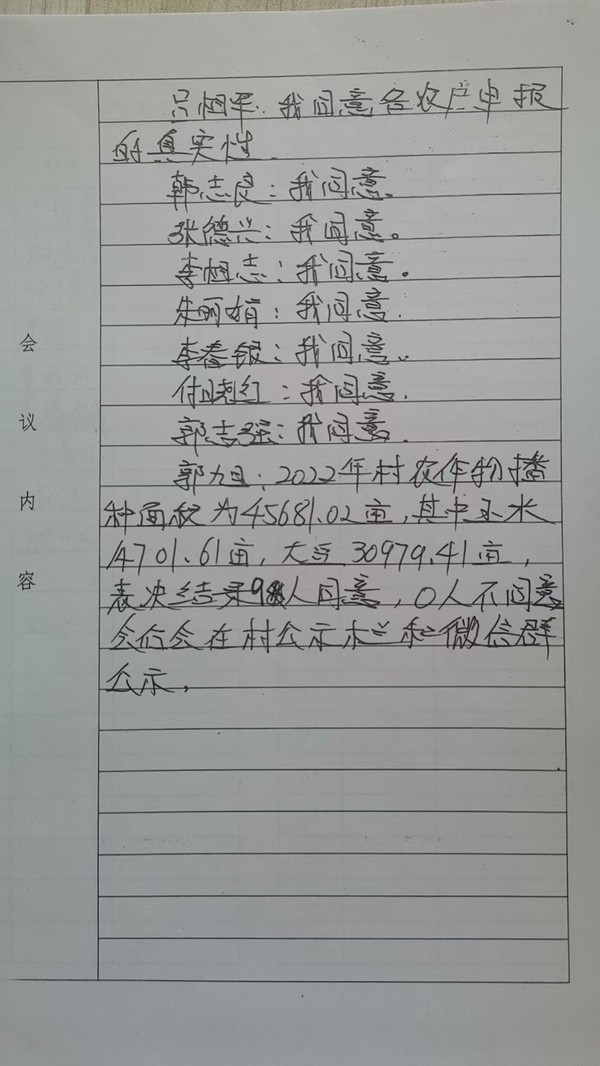 吕相军：我同意各农户申报
的真实性.
韩志良：我同意。
张德兴：我同意。
李相志：我同意。
朱丽娟：我同意.
李春银：我同意.
付晓红：我同意.
郭志强：我同意.
郭旭：2022年村农作物播
种面积为45681.02亩,其中玉米
14701.61亩,大豆30979.41亩,
表决结果98人同意,0人不同意
会后会在村公示栏和微信群
公示.
会
议
内
容